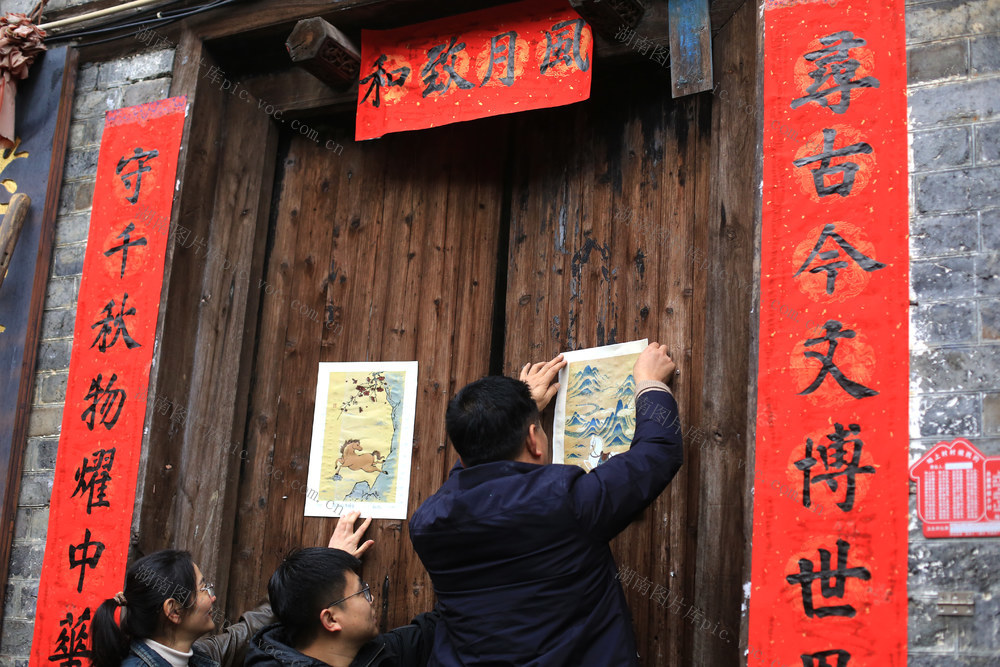 風月致和
尋古今文博世
守千秋物耀中華
湖南图片库 pic.voc.com.cn